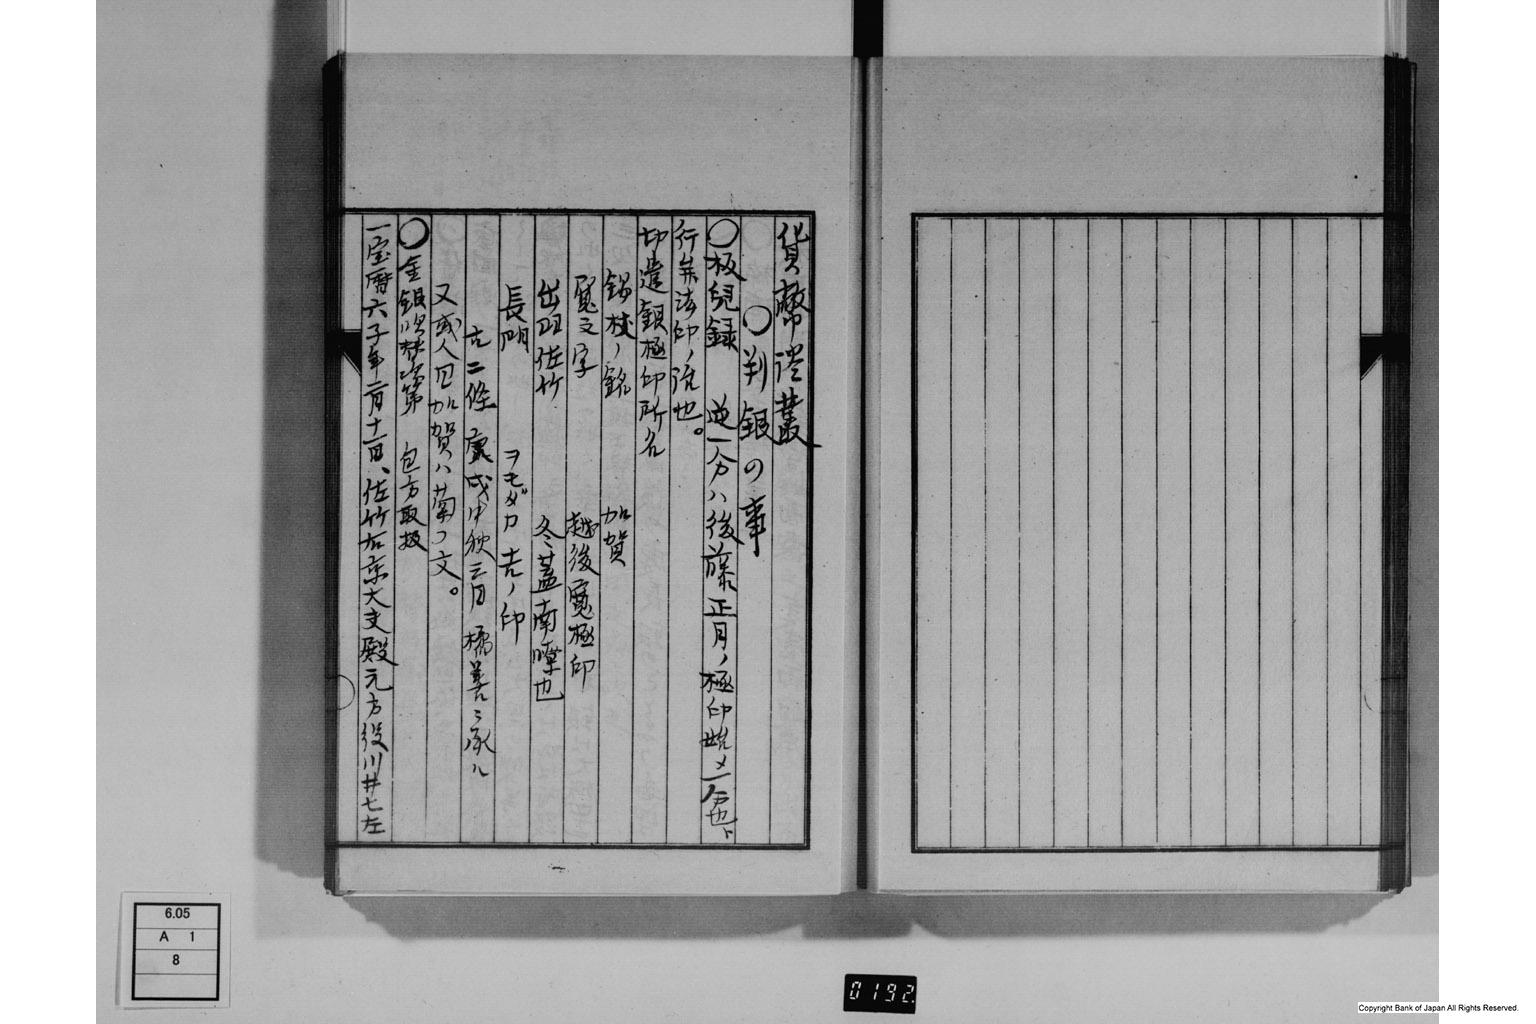 貨幣證叢
〇判銀の事
〇板兒録 逆一分ハ後藤正月ノ極印始メ一分也ト
行弁法印ノ流也。
切遣銀極印所名
錫枝ノ銘 加賀
寛文字 越後寛極印
出羽佐竹 冬蓋南暲也
長門 ヲモダカ 吉ノ印
古二條 戊申秋三月 橘善ニ承ル
又或人曰加賀ハ菊ノ文。
〇金銀吹替次第 包方取扱
一宝暦六子年二月十一日、佐竹右京大夫殿元方役川井七左
6.05
A 1
8
0192
Copyright Bank of Japan All Rights Reserved.